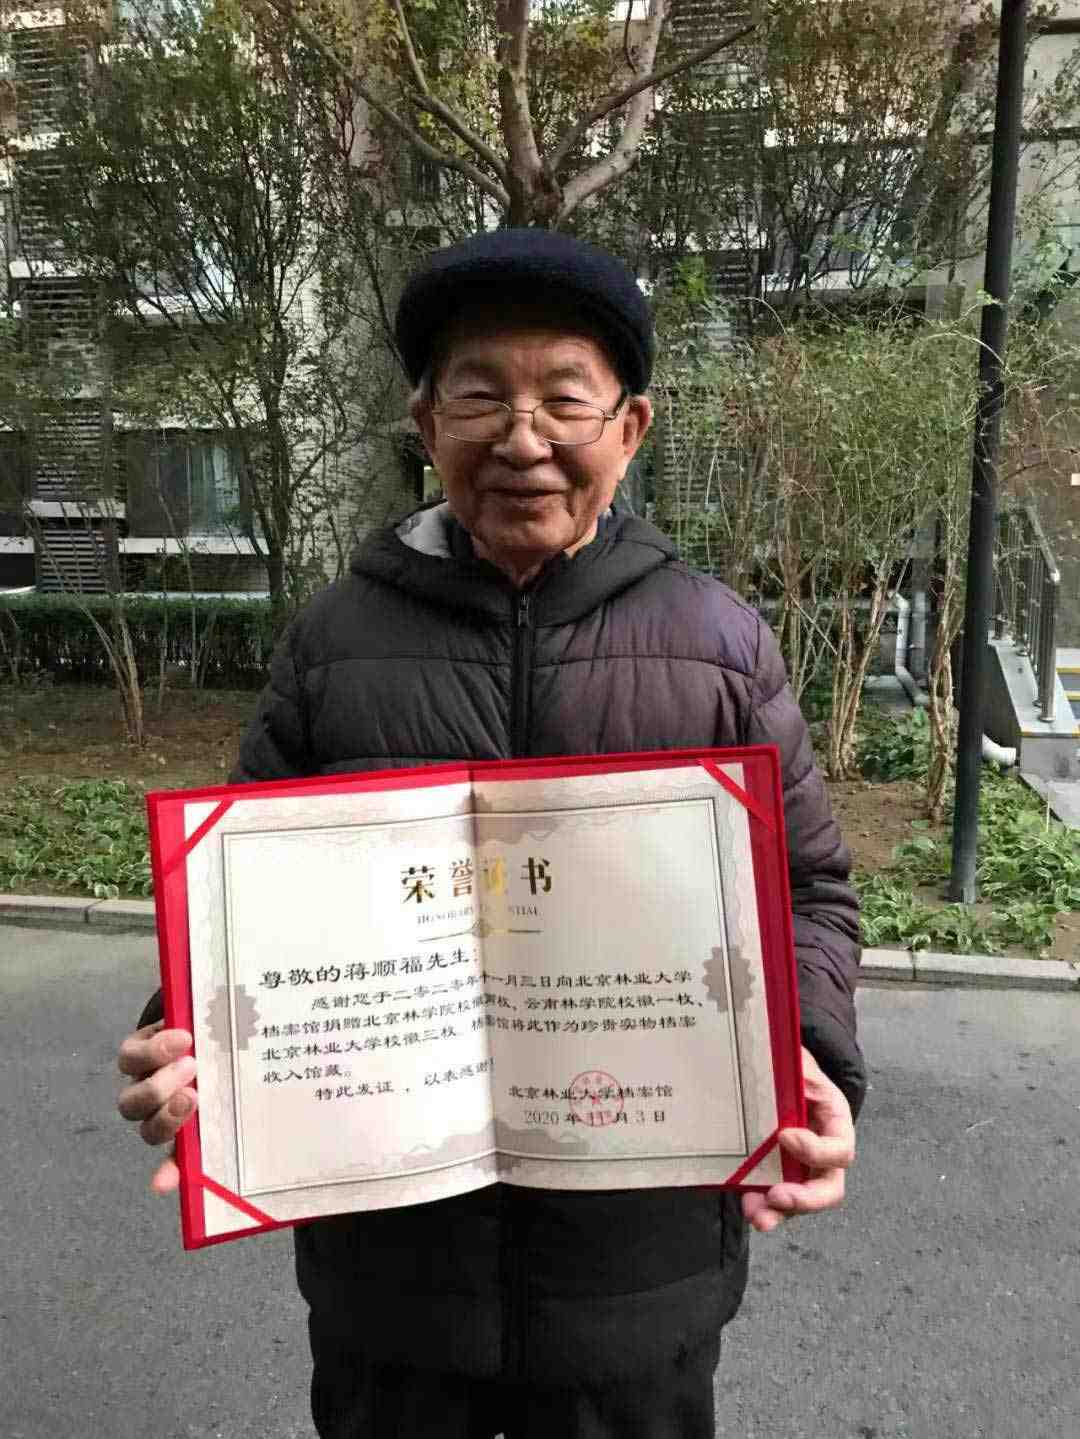 荣誉证书
HONORARY CREDENTIAL
尊敬的蒋顺福先生：
感谢您于二零二零年十一月三日向北京林业大学
档案馆捐赠北京林学院校徽两枚、云南林学院校徽一枚、
北京林业大学校徽三枚，档案馆将此作为珍贵实物档案
收入馆藏。
特此发证，以表感谢！
北京林业大学档案馆
2020年11月3日